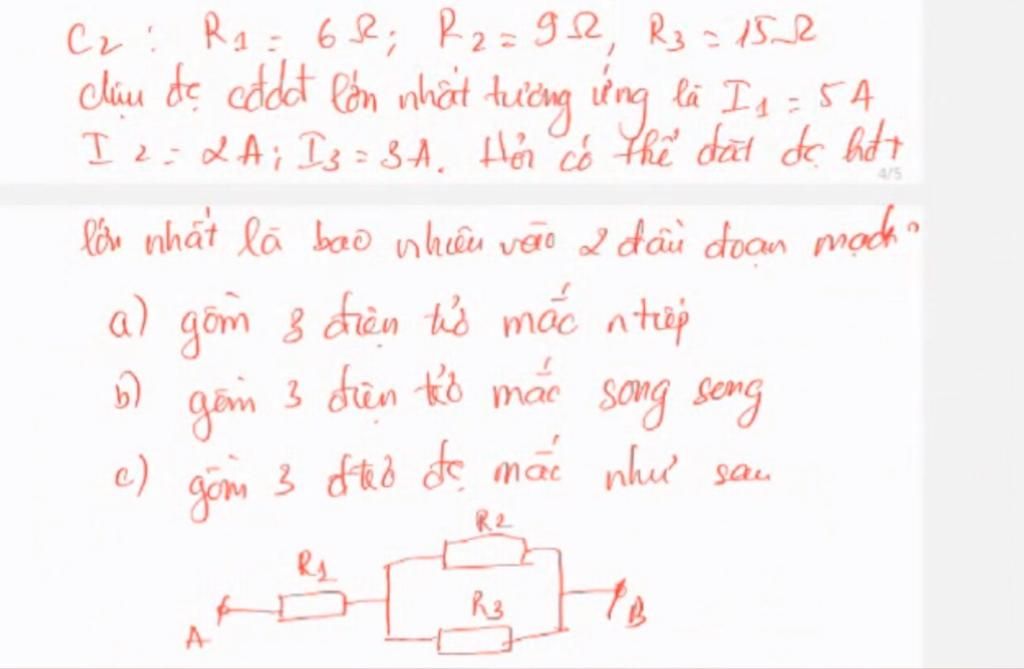 C2 : R1 = 6Ω; R2 = 9Ω, R3 = 15Ω
chịu đc cđdđ lớn nhất tương ứng là I1 = 5A
I2 = 2A; I3 = 3A. Hỏi có thể đặt đc hđt
4/5
lớn nhất là bao nhiêu vào 2 đầu đoạn mạch?
a) gồm 3 điện trở mắc ntiếp
b) gồm 3 điện trở mắc song song
c) gồm 3 đtrở đc mắc như sau
R2
R1
R3
A
B